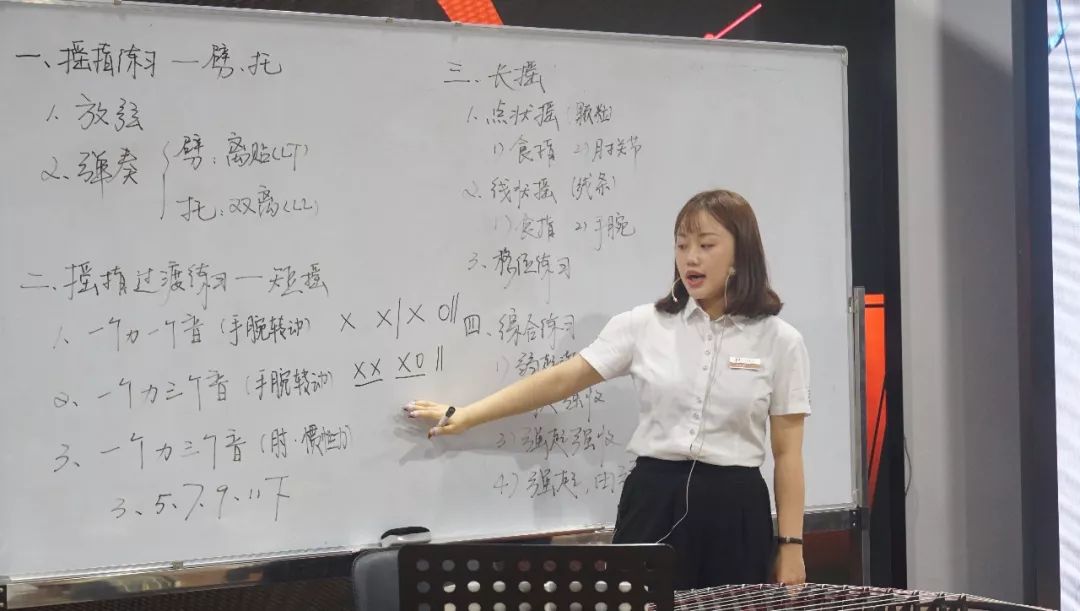 一、摇指练习 — 劈、托
1. 放弦
2. 弹奏
劈：离贴(LT)
托：双离(LL)
二、摇指过渡练习 — 短摇
1. 一个力一个音 (手腕转动) X X|X 0||
2. 一个力三个音 (手腕转动) XX X0 ||
3、一个力三个音 (肘·惯性力)
3、5、7、9、11下
三、长摇
1. 点状摇 (颗粒)
1) 食指 2) 肘关节
2. 线状摇 (线条)
1) 食指 2) 手腕
3、移位练习
四、综合练习
1)
强收
3) 强起强收
4) 强起, 由